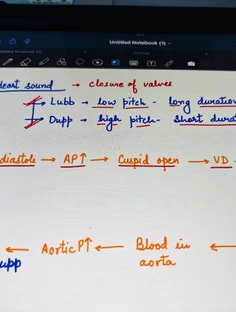 Untitled Notebook (1)
eart sound → closure of valves
Lubb → low pitch - long duration
Dupp → high pitch - short durat
diastole → AP↑ → Cuspid open → VD
← Aortic P↑ ← Blood in ←
upp aorta